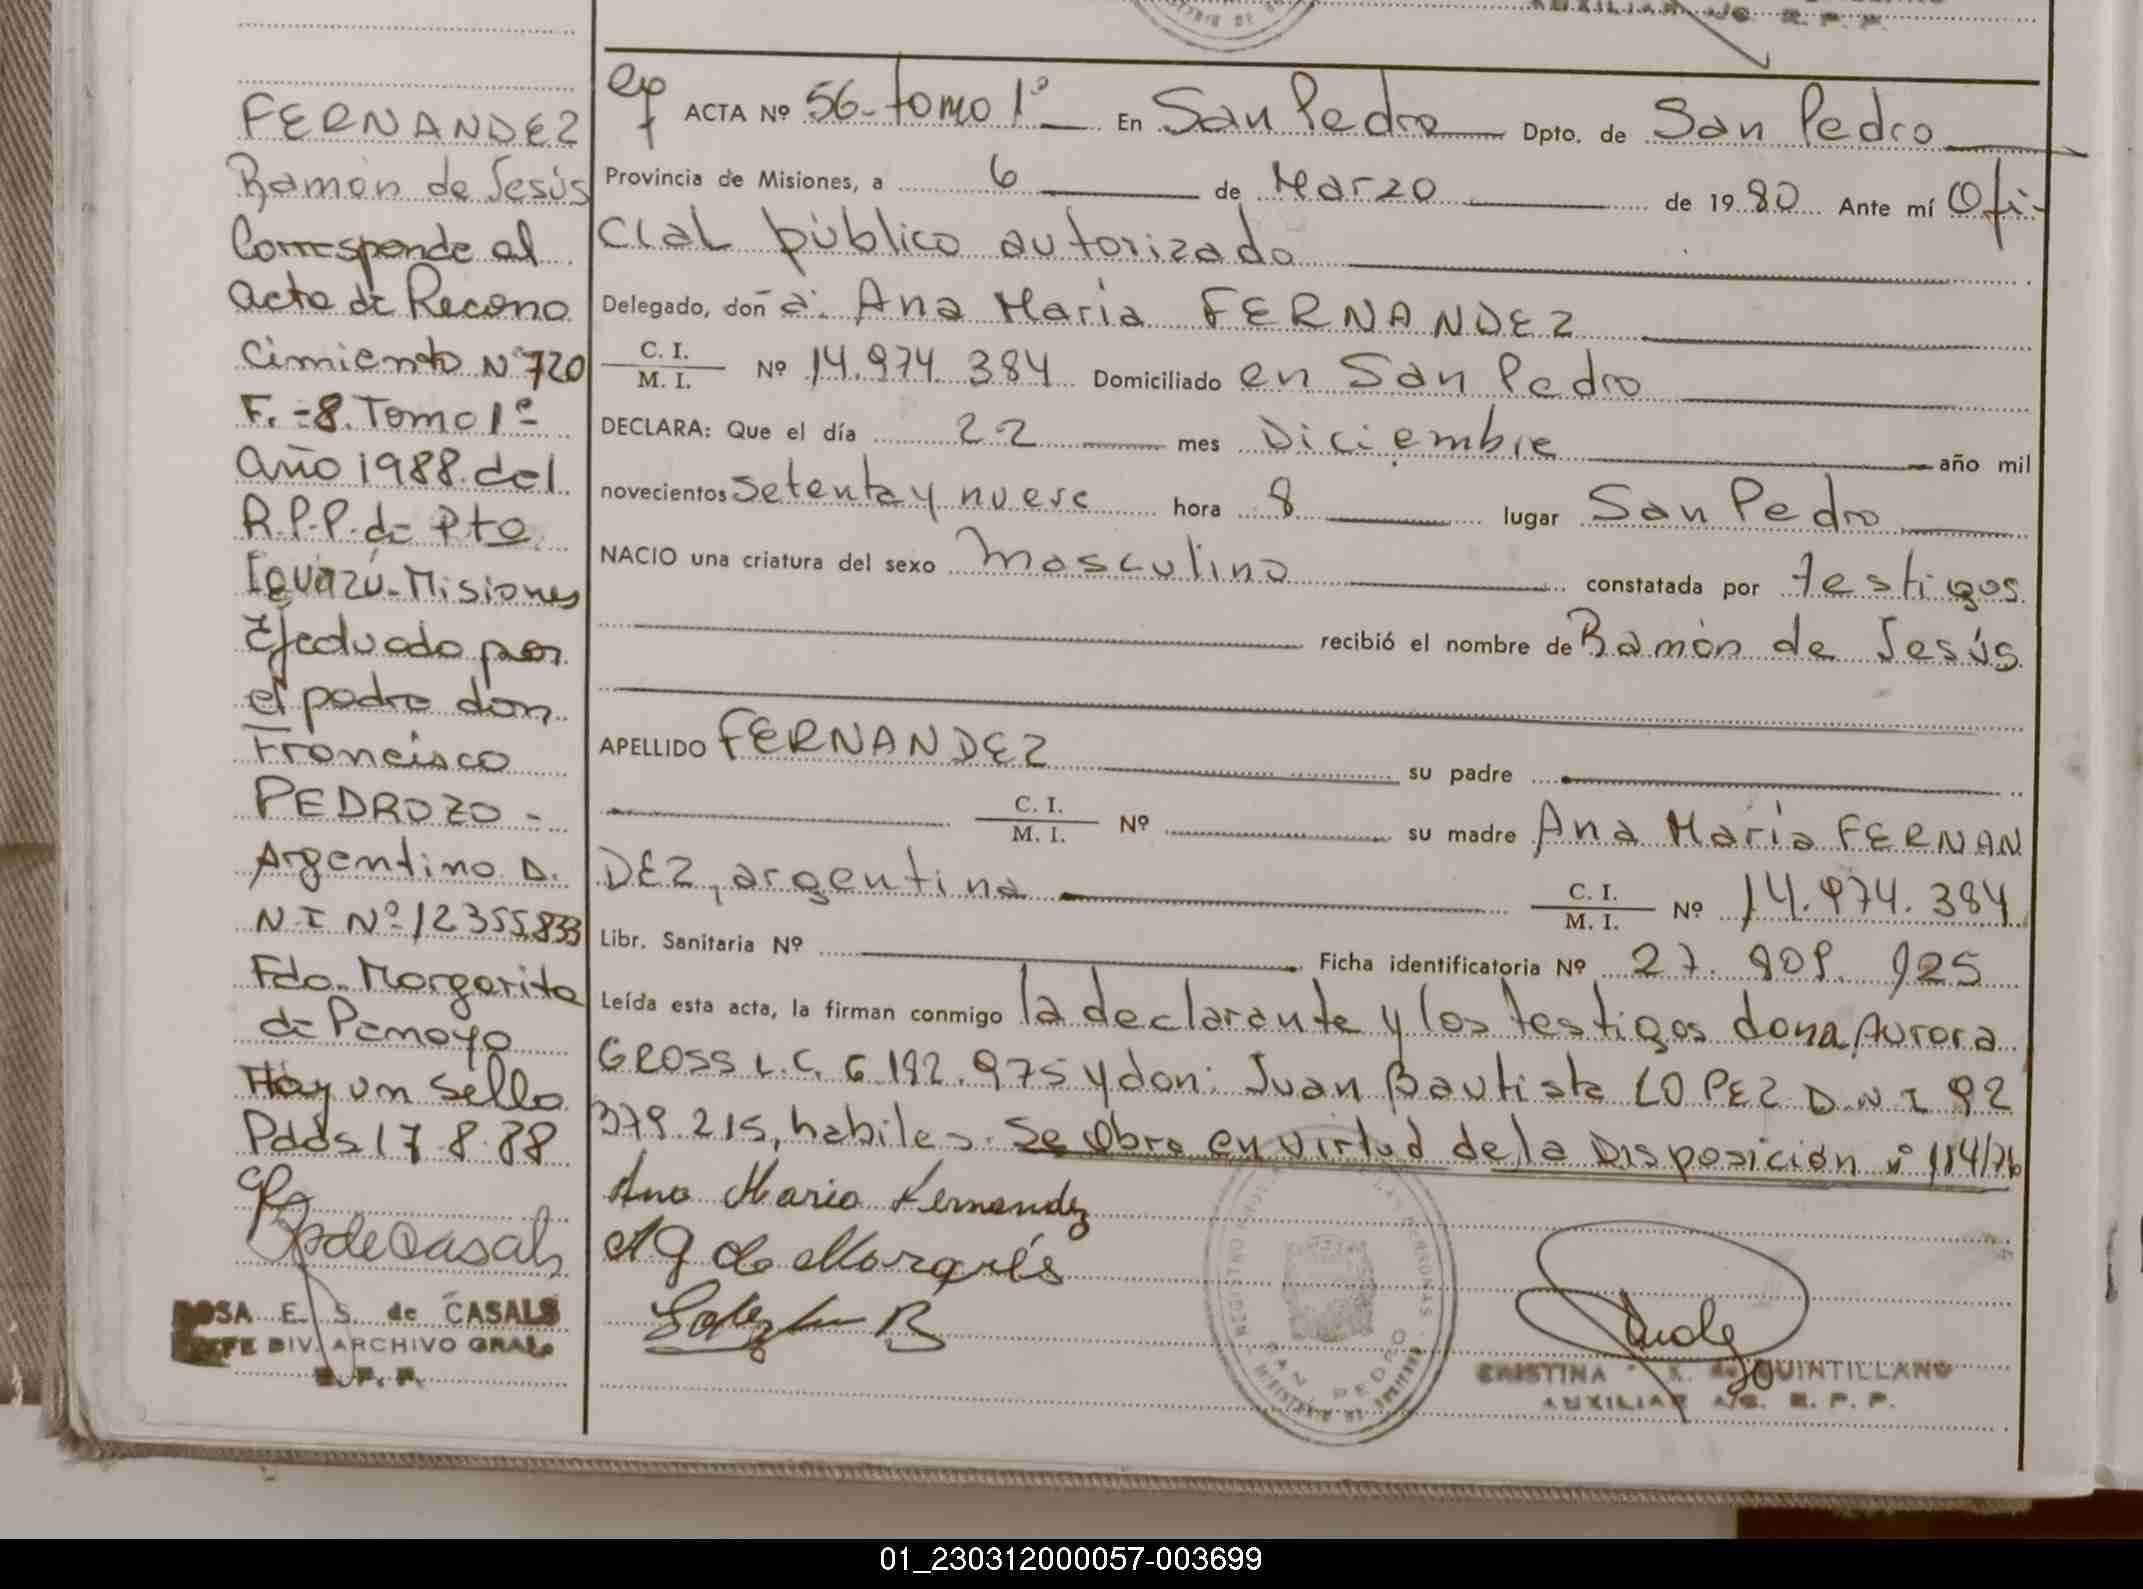 AUXILIAR A/C. R. P. P.
FERNANDEZ
Ramón de Jesús
Corresponde al
acta de Recono
cimiento Nº 720
F. =8. Tomo 1º=
año 1988. del
R.P.P. de Pto
Iguazú-Misiones
Efectuado por
el padre don
Francisco
PEDROZO -
Argentino D.
N-I Nº 12355.833
Fdo. Margarita
de Pamoyo
Hay un sello
Pdas 17-8-88
deCasals
ROSA E. S. de CASALS
JEFE DIV. ARCHIVO GRAL.
R. P. P.
ACTA Nº 56-tomo 1º En San Pedro Dpto. de San Pedro
Provincia de Misiones, a 6 de Marzo de 1980 Ante mí Ofi-
cial público autorizado
Delegado, don a: Ana María FERNANDEZ
C. I.
M. I. Nº 14.974.384 Domiciliado en San Pedro
DECLARA: Que el día 22 mes Diciembre año mil
novecientos setenta y nueve hora 8 lugar San Pedro
NACIO una criatura del sexo masculino constatada por testigos
recibió el nombre de Ramón de Jesús
APELLIDO FERNANDEZ su padre
C. I.
M. I. Nº su madre Ana María FERNAN
DEZ, argentina C. I.
M. I. Nº 14.974.384
Libr. Sanitaria Nº Ficha identificatoria Nº 27.809.925
Leída esta acta, la firman conmigo la declarante y los testigos dona Aurora
GROSS L.C. 6.192.975 y don: Juan Bautista LOPEZ D.N.I 92
379.215, habiles. Se obra en virtud de la Disposición nº 114/76
Ana Maria Fernandez
A G de Marqués
SAN PEDRO
CRISTINA de QUINTILLANO
AUXILIAR A/C. R. P. P.
01_230312000057-003699